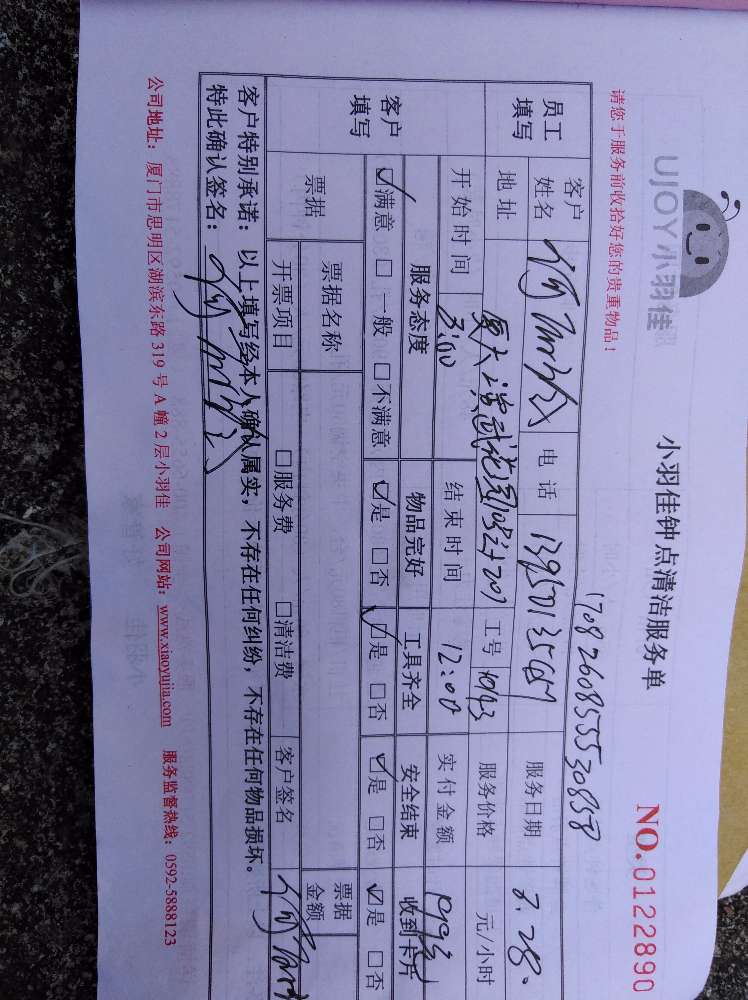 UJOY小羽佳
小羽佳钟点清洁服务单
NO.0122890
请您于服务前收拾好您的贵重物品！
1708260855530858
员工填写
客户姓名
电话 13950135767
服务日期 3.28.
地址
工号
服务价格 元/小时
开始时间 3:00
结束时间 12:00
实付金额
客户填写
服务态度 物品完好 工具齐全 安全结束 收到卡片
☑满意 □一般 □不满意 ☑是 □否 ☑是 □否 ☑是 □否 ☑是 □否
票据
票据名称
票据金额
开票项目 □服务费 □清洁费 客户签名
客户特别承诺：以上填写经本人确认属实，不存在任何纠纷，不存在任何物品损坏。
特此确认签名：
公司地址：厦门市思明区湖滨东路 319 号 A 幢 2 层小羽佳 公司网站：www.xiaoyujia.com 服务监督热线：0592-5888123